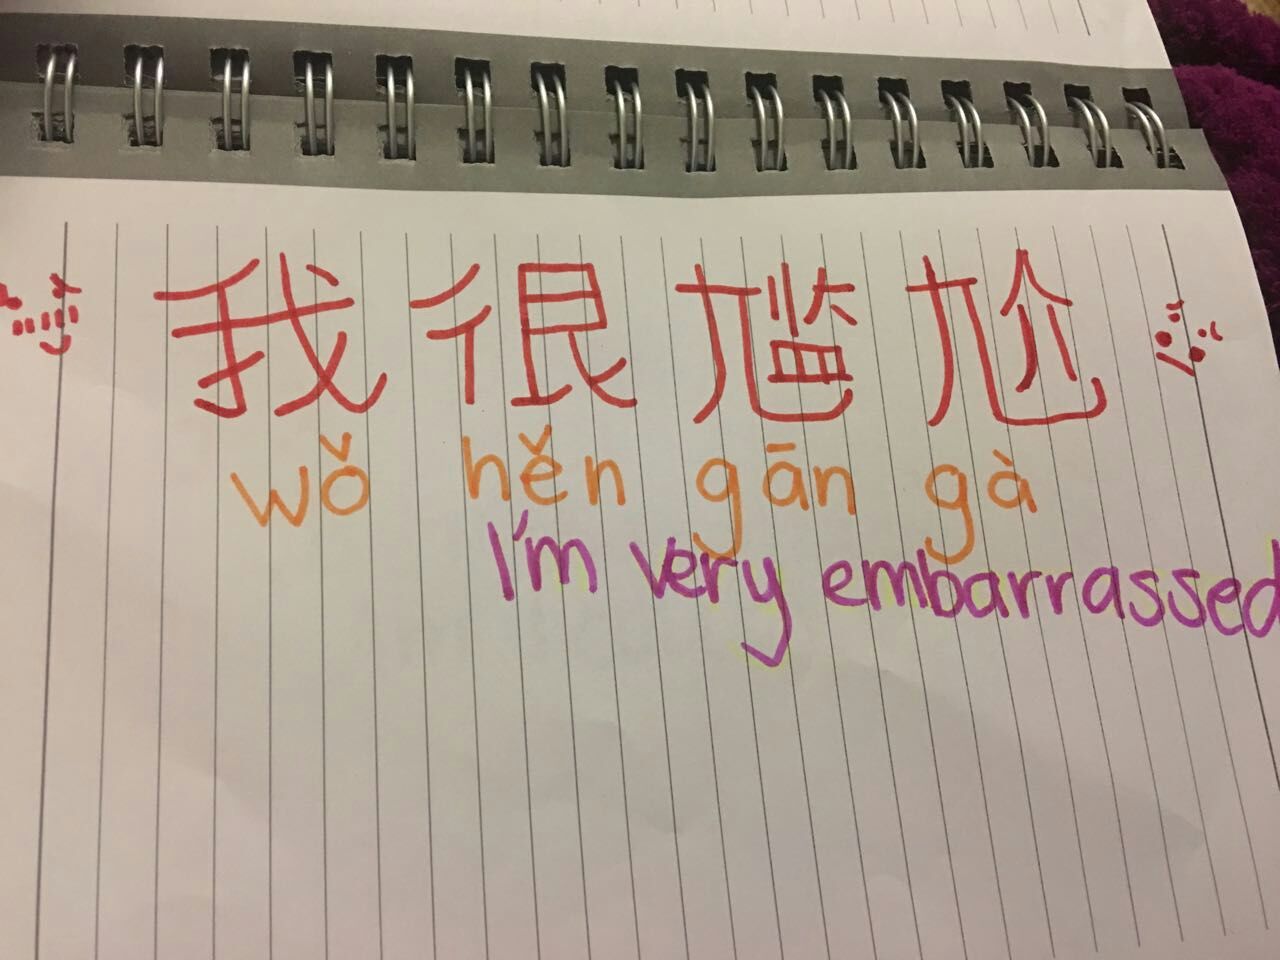 我很尴尬
wǒ hěn gān gà
I'm very embarrassed